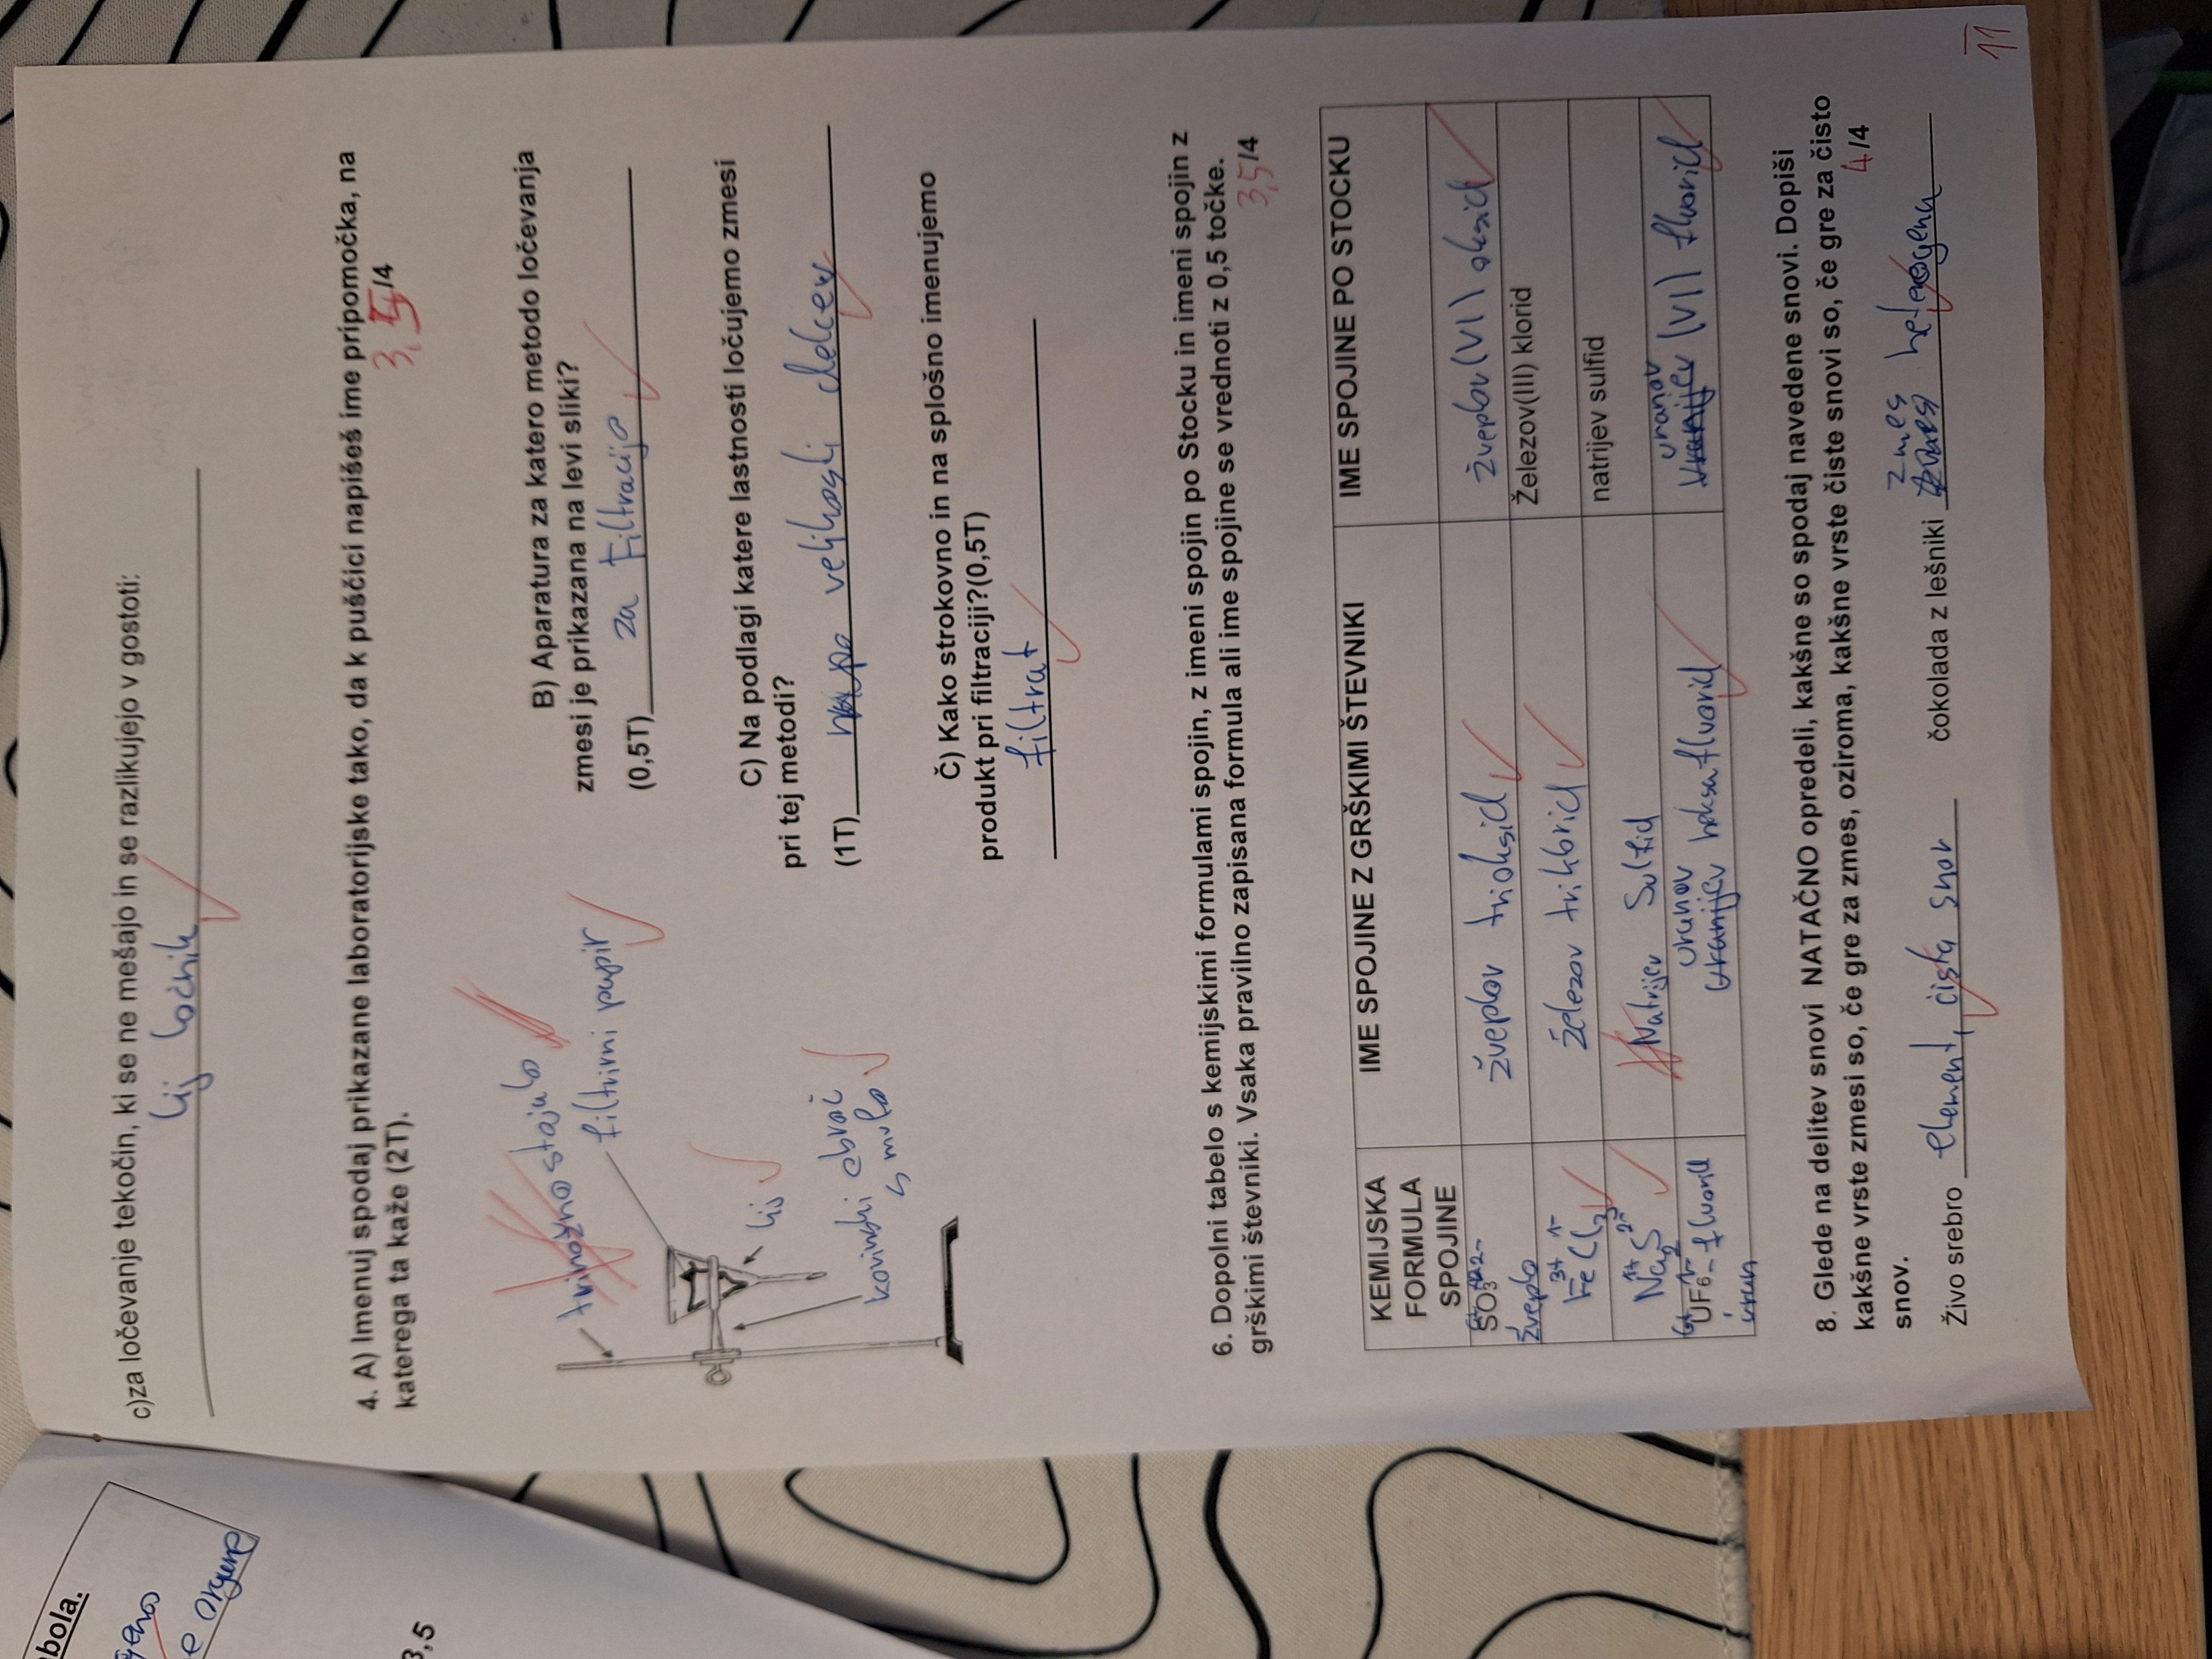 bola.
geno
e organe
3,5
c)za ločevanje tekočin, ki se ne mešajo in se razlikujejo v gostoti:
lij ločnik
4. A) Imenuj spodaj prikazane laboratorijske tako, da k puščici napišeš ime pripomočka, na
katerega ta kaže (2T).
3,5/4
trinožno stojalo
filtrirni papir
lij
kovinski obroč
s mufo
B) Aparatura za katero metodo ločevanja
zmesi je prikazana na levi sliki?
(0,5T) za Filtracijo
C) Na podlagi katere lastnosti ločujemo zmesi
pri tej metodi?
(1T) po velikosti delcev
Č) Kako strokovno in na splošno imenujemo
produkt pri filtraciji?(0,5T)
filtrat
6. Dopolni tabelo s kemijskimi formulami spojin, z imeni spojin po Stocku in imeni spojin z
grškimi števniki. Vsaka pravilno zapisana formula ali ime spojine se vrednoti z 0,5 točke.
3,5/4
KEMIJSKA
FORMULA
SPOJINE
IME SPOJINE Z GRŠKIMI ŠTEVNIKI
IME SPOJINE PO STOCKU
SO3
žveplo
žveplov trioksid
žveplov (VI) oksid
3+ 1-
FeCl3
železov triklorid
Železov(III) klorid
1+ 2-
Na2S
Natrijev Sulfid
natrijev sulfid
6+ 1-
UF6 - fluorid
uran
uranov
uranijev heksafluorid
uranov
uranijev (VI) fluorid
8. Glede na delitev snovi NATAČNO opredeli, kakšne so spodaj navedene snovi. Dopiši
kakšne vrste zmesi so, če gre za zmes, oziroma, kakšne vrste čiste snovi so, če gre za čisto
snov.
4/4
Živo srebro element, čista snov
čokolada z lešniki zmes heterogena
11